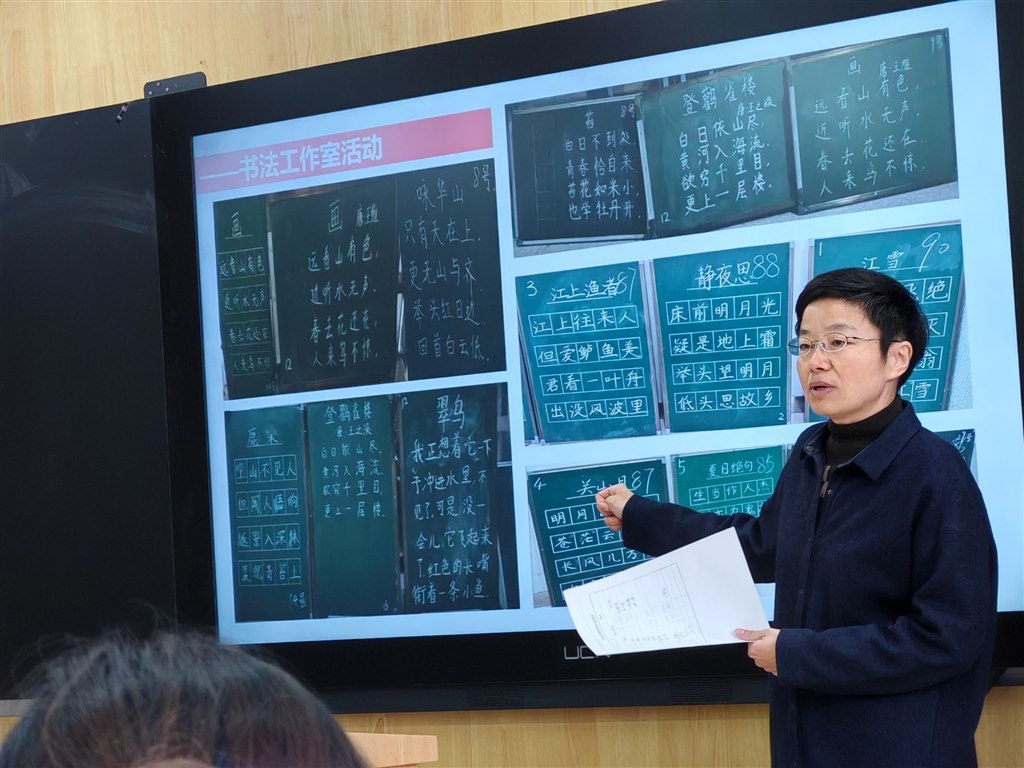 ——书法工作室活动
画
远看山有色
近听水无声
春去花还在
人来鸟不惊
画
唐 王维
远看山有色，
近听水无声。
春去花还在，
人来鸟不惊。
12
咏华山
8号
只有天在上，
更无山与齐。
举头红日近，
回首白云低。
苔
8号
白日不到处
青春恰自来
苔花如米小
也学牡丹开
登鹳雀楼
唐 王之涣
白日依山尽，
黄河入海流。
欲穷千里目，
更上一层楼。
12
画
唐 王维
远看山有色，
近听水无声。
春去花还在，
人来鸟不惊。
3
江上渔者
87
江上往来人
但爱鲈鱼美
君看一叶舟
出没风波里
静夜思
88
床前明月光
疑是地上霜
举头望明月
低头思故乡
2
1
江雪
90
绝
灭
翁
雪
鹿柴
空山不见人
但闻人语响
返景入深林
复照青苔上
14号
登鹳雀楼
唐 王之涣
白日依山尽，
黄河入海流。
欲穷千里目，
更上一层楼。
翠鸟
我正想着，它一下
子冲进水里，不
见了。可是，没一
会儿，它飞起来
了，红色的长嘴
衔着一条小鱼。
4
关山月
87
明月
苍茫云
长风几万
5
夏日绝句
85
生当作人杰